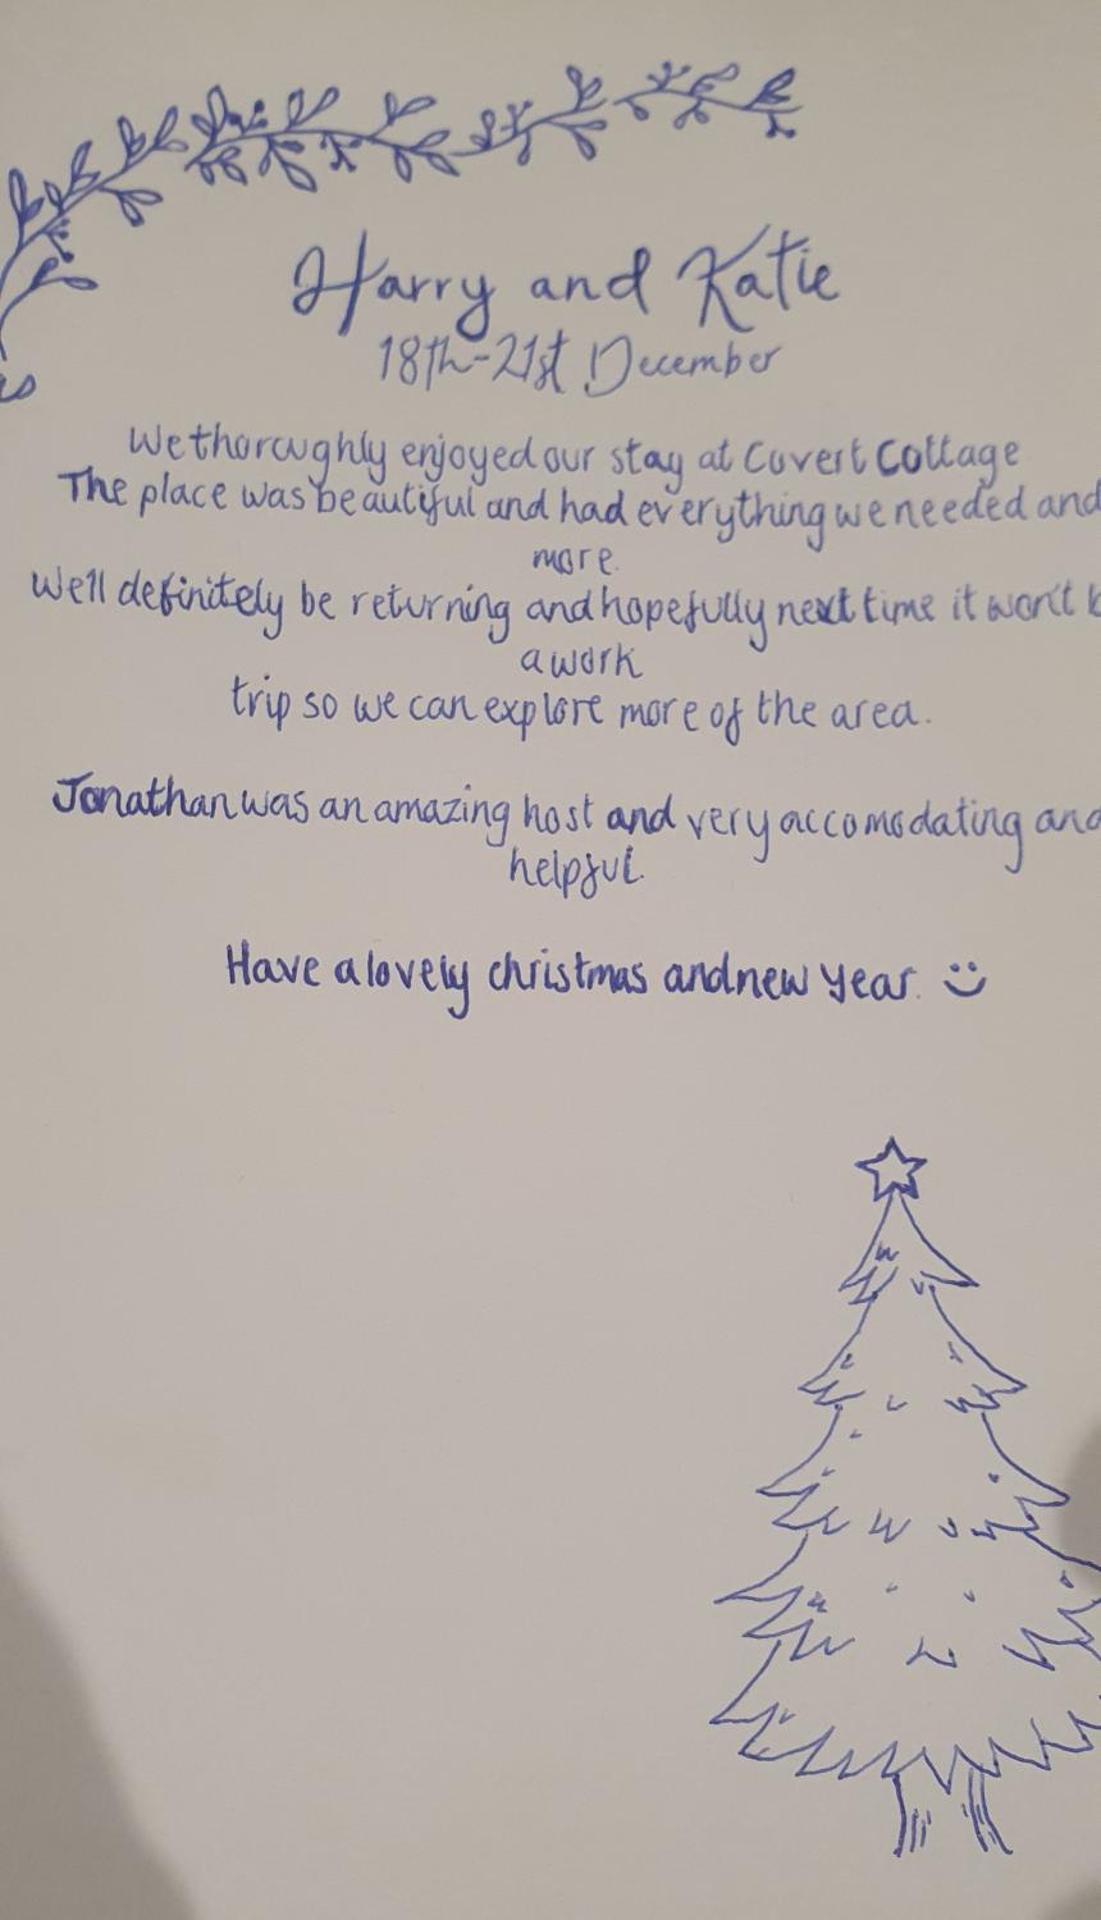 Harry and Katie
18th-21st December
We thoroughly enjoyed our stay at Covert Cottage
The place was beautiful and had everything we needed and
more.
We'll definitely be returning and hopefully next time it won't b
a work
trip so we can explore more of the area.
Jonathan was an amazing host and very accomodating and
helpful.
Have a lovely christmas and new year. :)